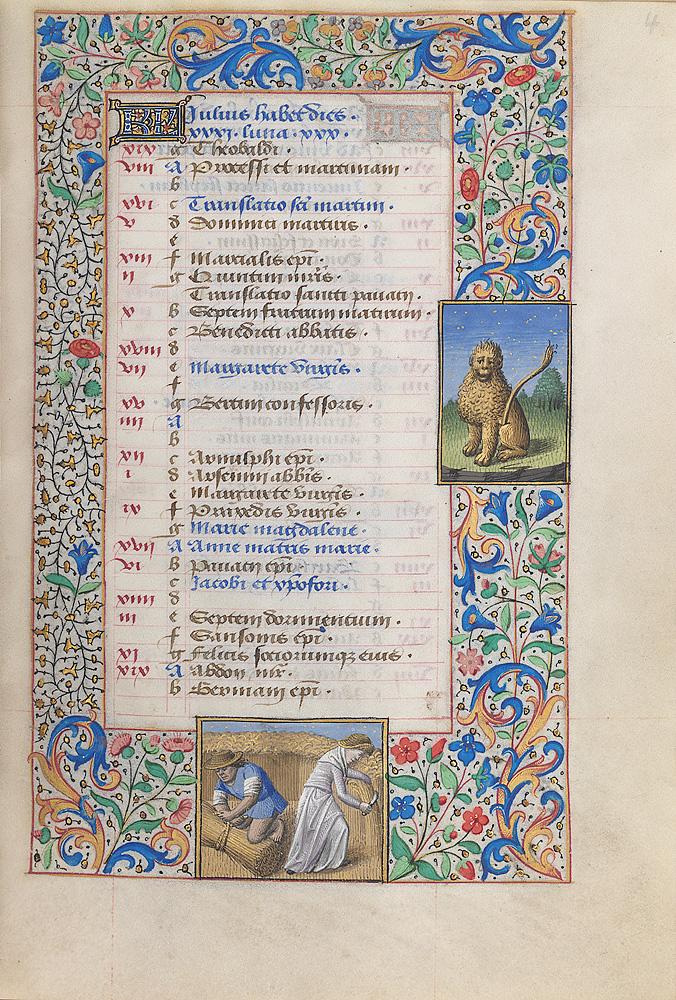 4
KL Julius habet dies .
xxxi . luna . xxx .
xix g Theobaldi .
viii A Processi et martiniani
b
xvi c Translatio sci martini .
v d Dominici martiris .
e
xiii f Marcialis epi .
ii g Quintini mris .
Translatio sancti panatii .
x b Septem fratrum martirum .
c Benedicti abbatis .
xviii d
vii e Margarete virgis .
f
xv g Bertini confessoris .
iiii A
b
xii c Arnulphi epi .
i d Arsenii abbis .
e Margarete virgis .
ix f Praxedis virgis .
g Marie magdalene .
xvii A Anne matris marie .
vi b Panatii epi .
c Jacobi et xpofori .
xiiii d
iii e Septem dormientium .
f Sansonis epi .
xi g Felicis sociorumq eius .
xix A Abdon mr .
b Germani epi .